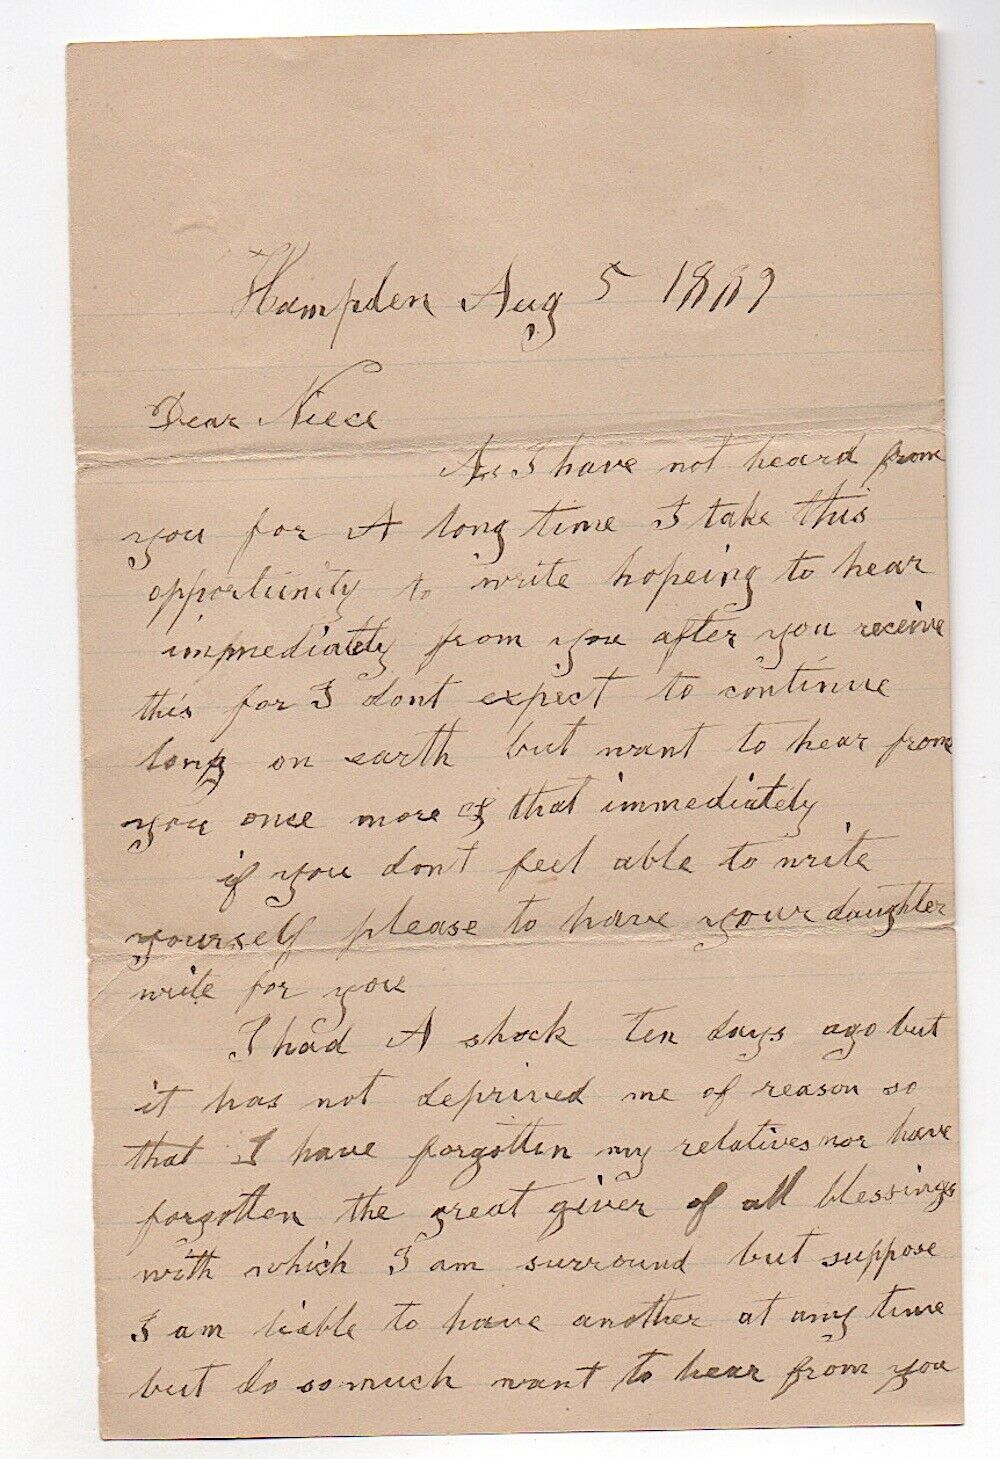 Hampden Aug 5 1889
Dear Niece
As I have not heard from
you for A long time I take this
opportunity to write hopeing to hear
immediately from you after you receive
this for I dont expect to continue
long on earth but want to hear from
you once more & that immediately
if you dont feel able to write
yourself please to have your daughter
write for you
I had A shock ten days ago but
it has not deprived me of reason so
that I have forgotten my relatives nor have
forgotten the great giver of all blessings
with which I am surround but suppose
I am liable to have another at any time
but do so much want to hear from you